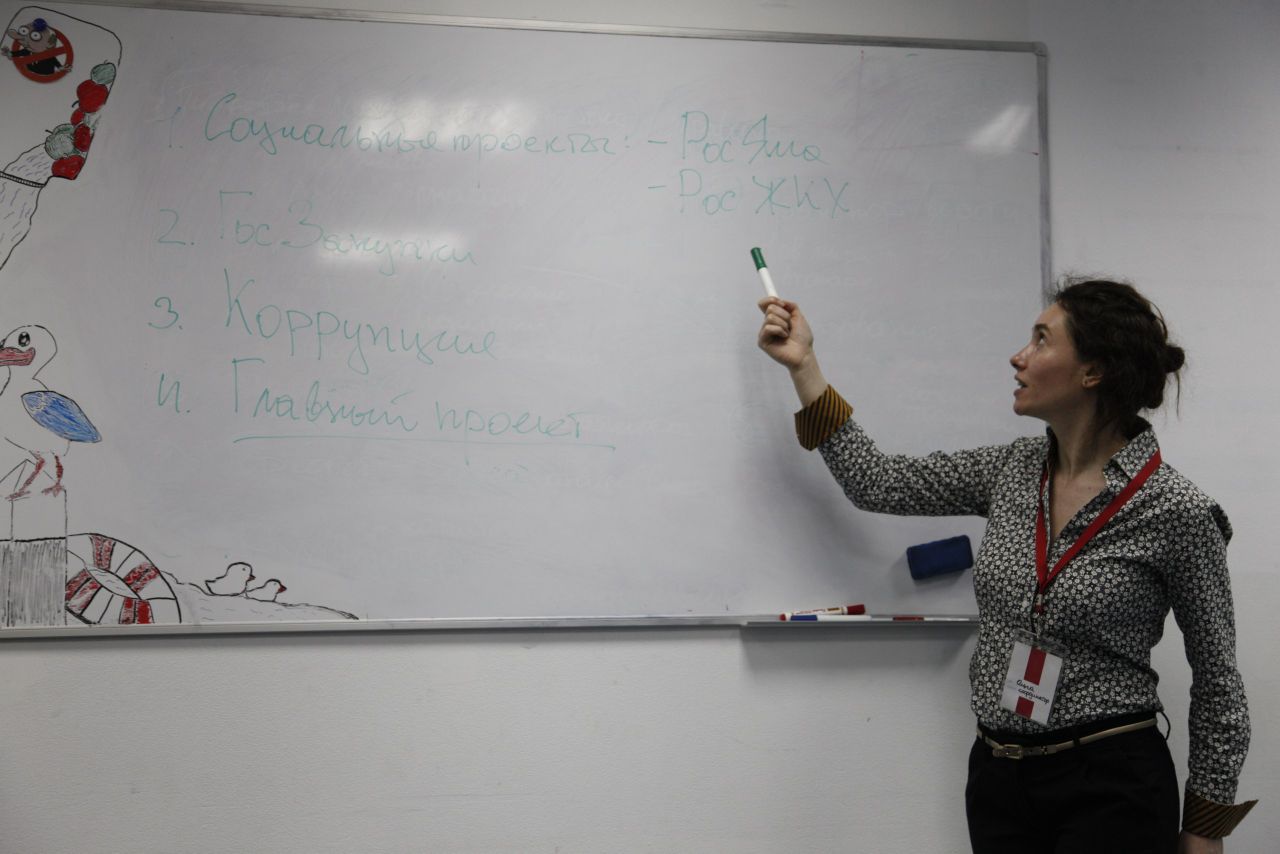 1. Социальные проекты: - РосЯма
- РосЖКХ
2. ГосЗакупки
3. Коррупция
4. Главный проект
Анна
координатор